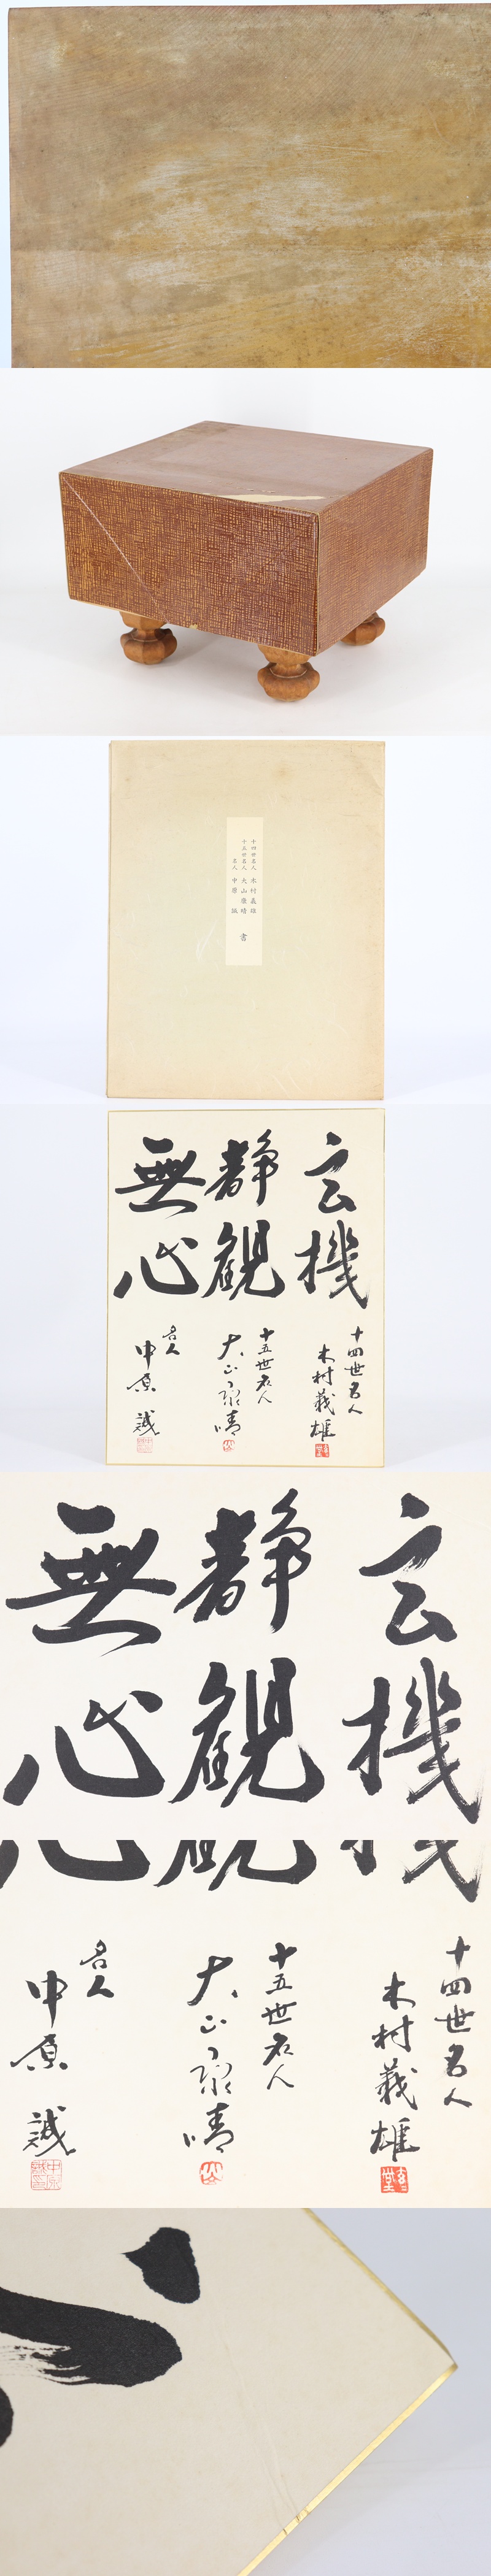 十四世名人 木村義雄
十五世名人 大山康晴 書
名人 中原誠
玄機
静観
無心
十四世名人
木村義雄
十五世名人
大山康晴
名人
中原誠
玄機
静観
無心
十四世名人
木村義雄
十五世名人
大山康晴
名人
中原誠